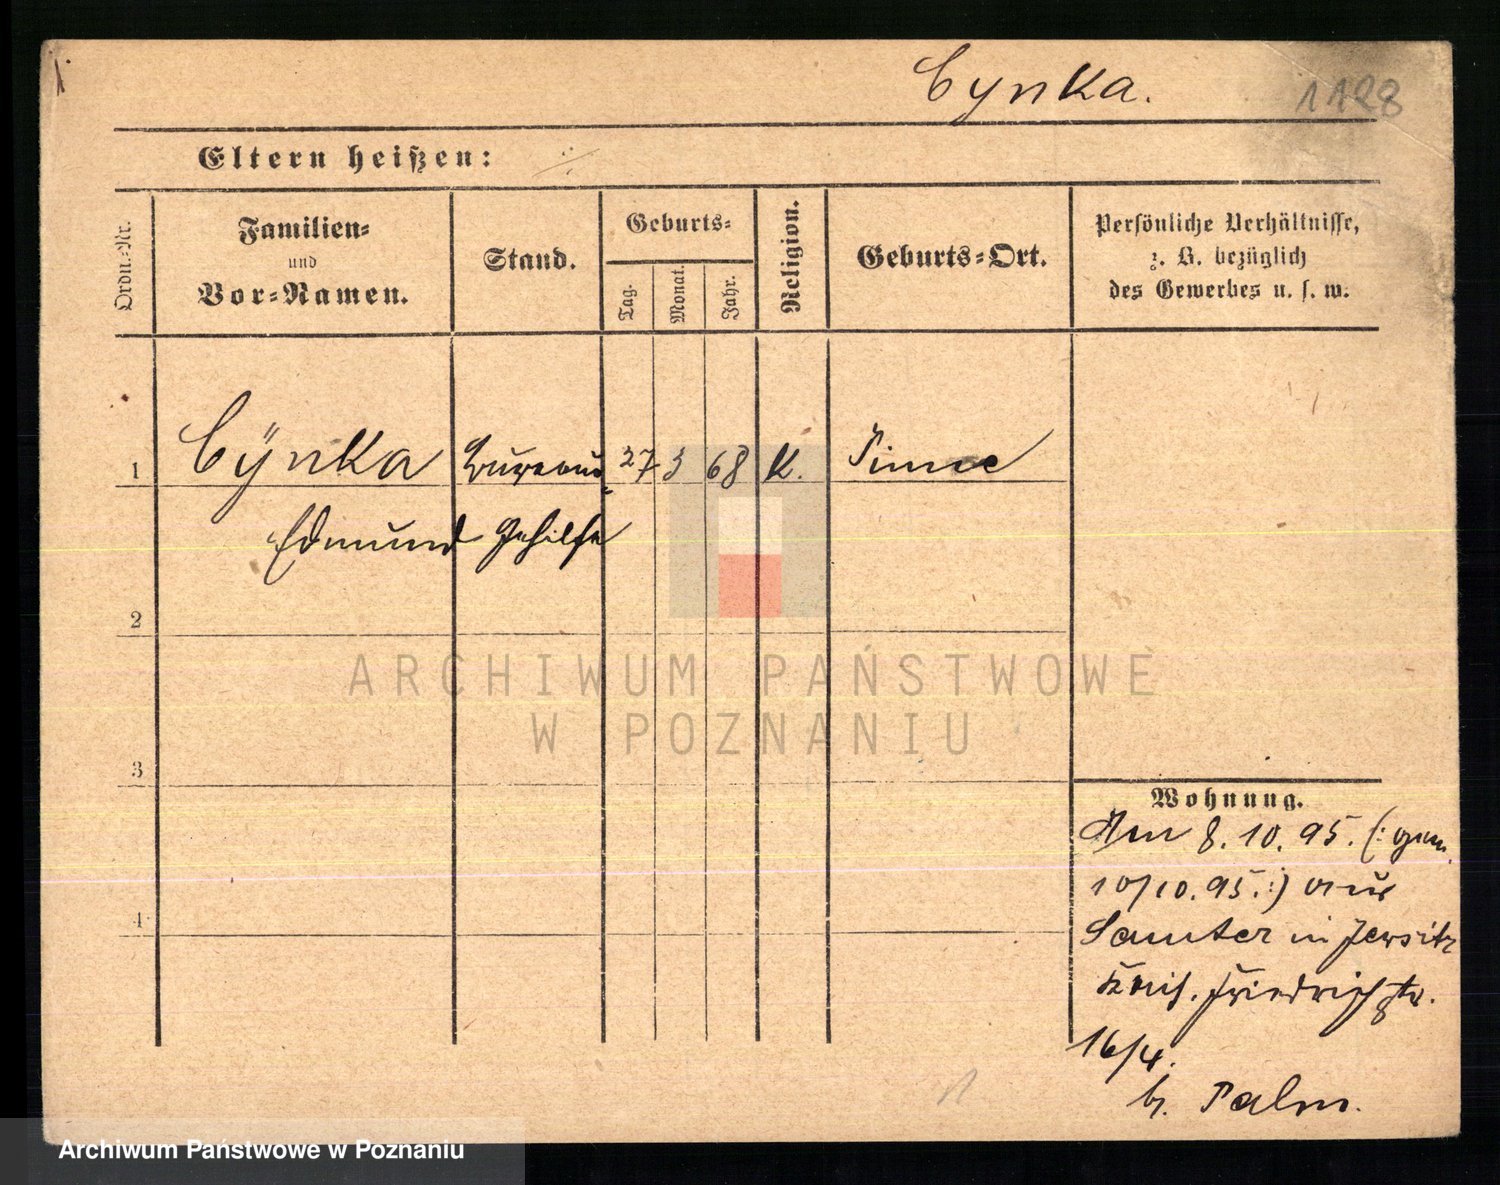 Cynka.
1128
Eltern heißen:
Ordn.-Nr.
Familien-
und
Vor-Namen.
Stand.
Geburts-
Tag.
Monat.
Jahr.
Religion.
Geburts-Ort.
Persönliche Verhältnisse,
z. B. bezüglich
des Gewerbes u. s. w.
1 Cÿnka Bureau- 27 3 68 K. Pinne
Edmund Gehilfe
2
3
4
Wohnung.
Am 8.10.95. (: gem.
10/10.95. :) aus
Samter in Jersitz
Kais. Friedrichstr.
16/4.
b. Palm.
ARCHIWUM PAŃSTWOWE
W POZNANIU
Archiwum Państwowe w Poznaniu